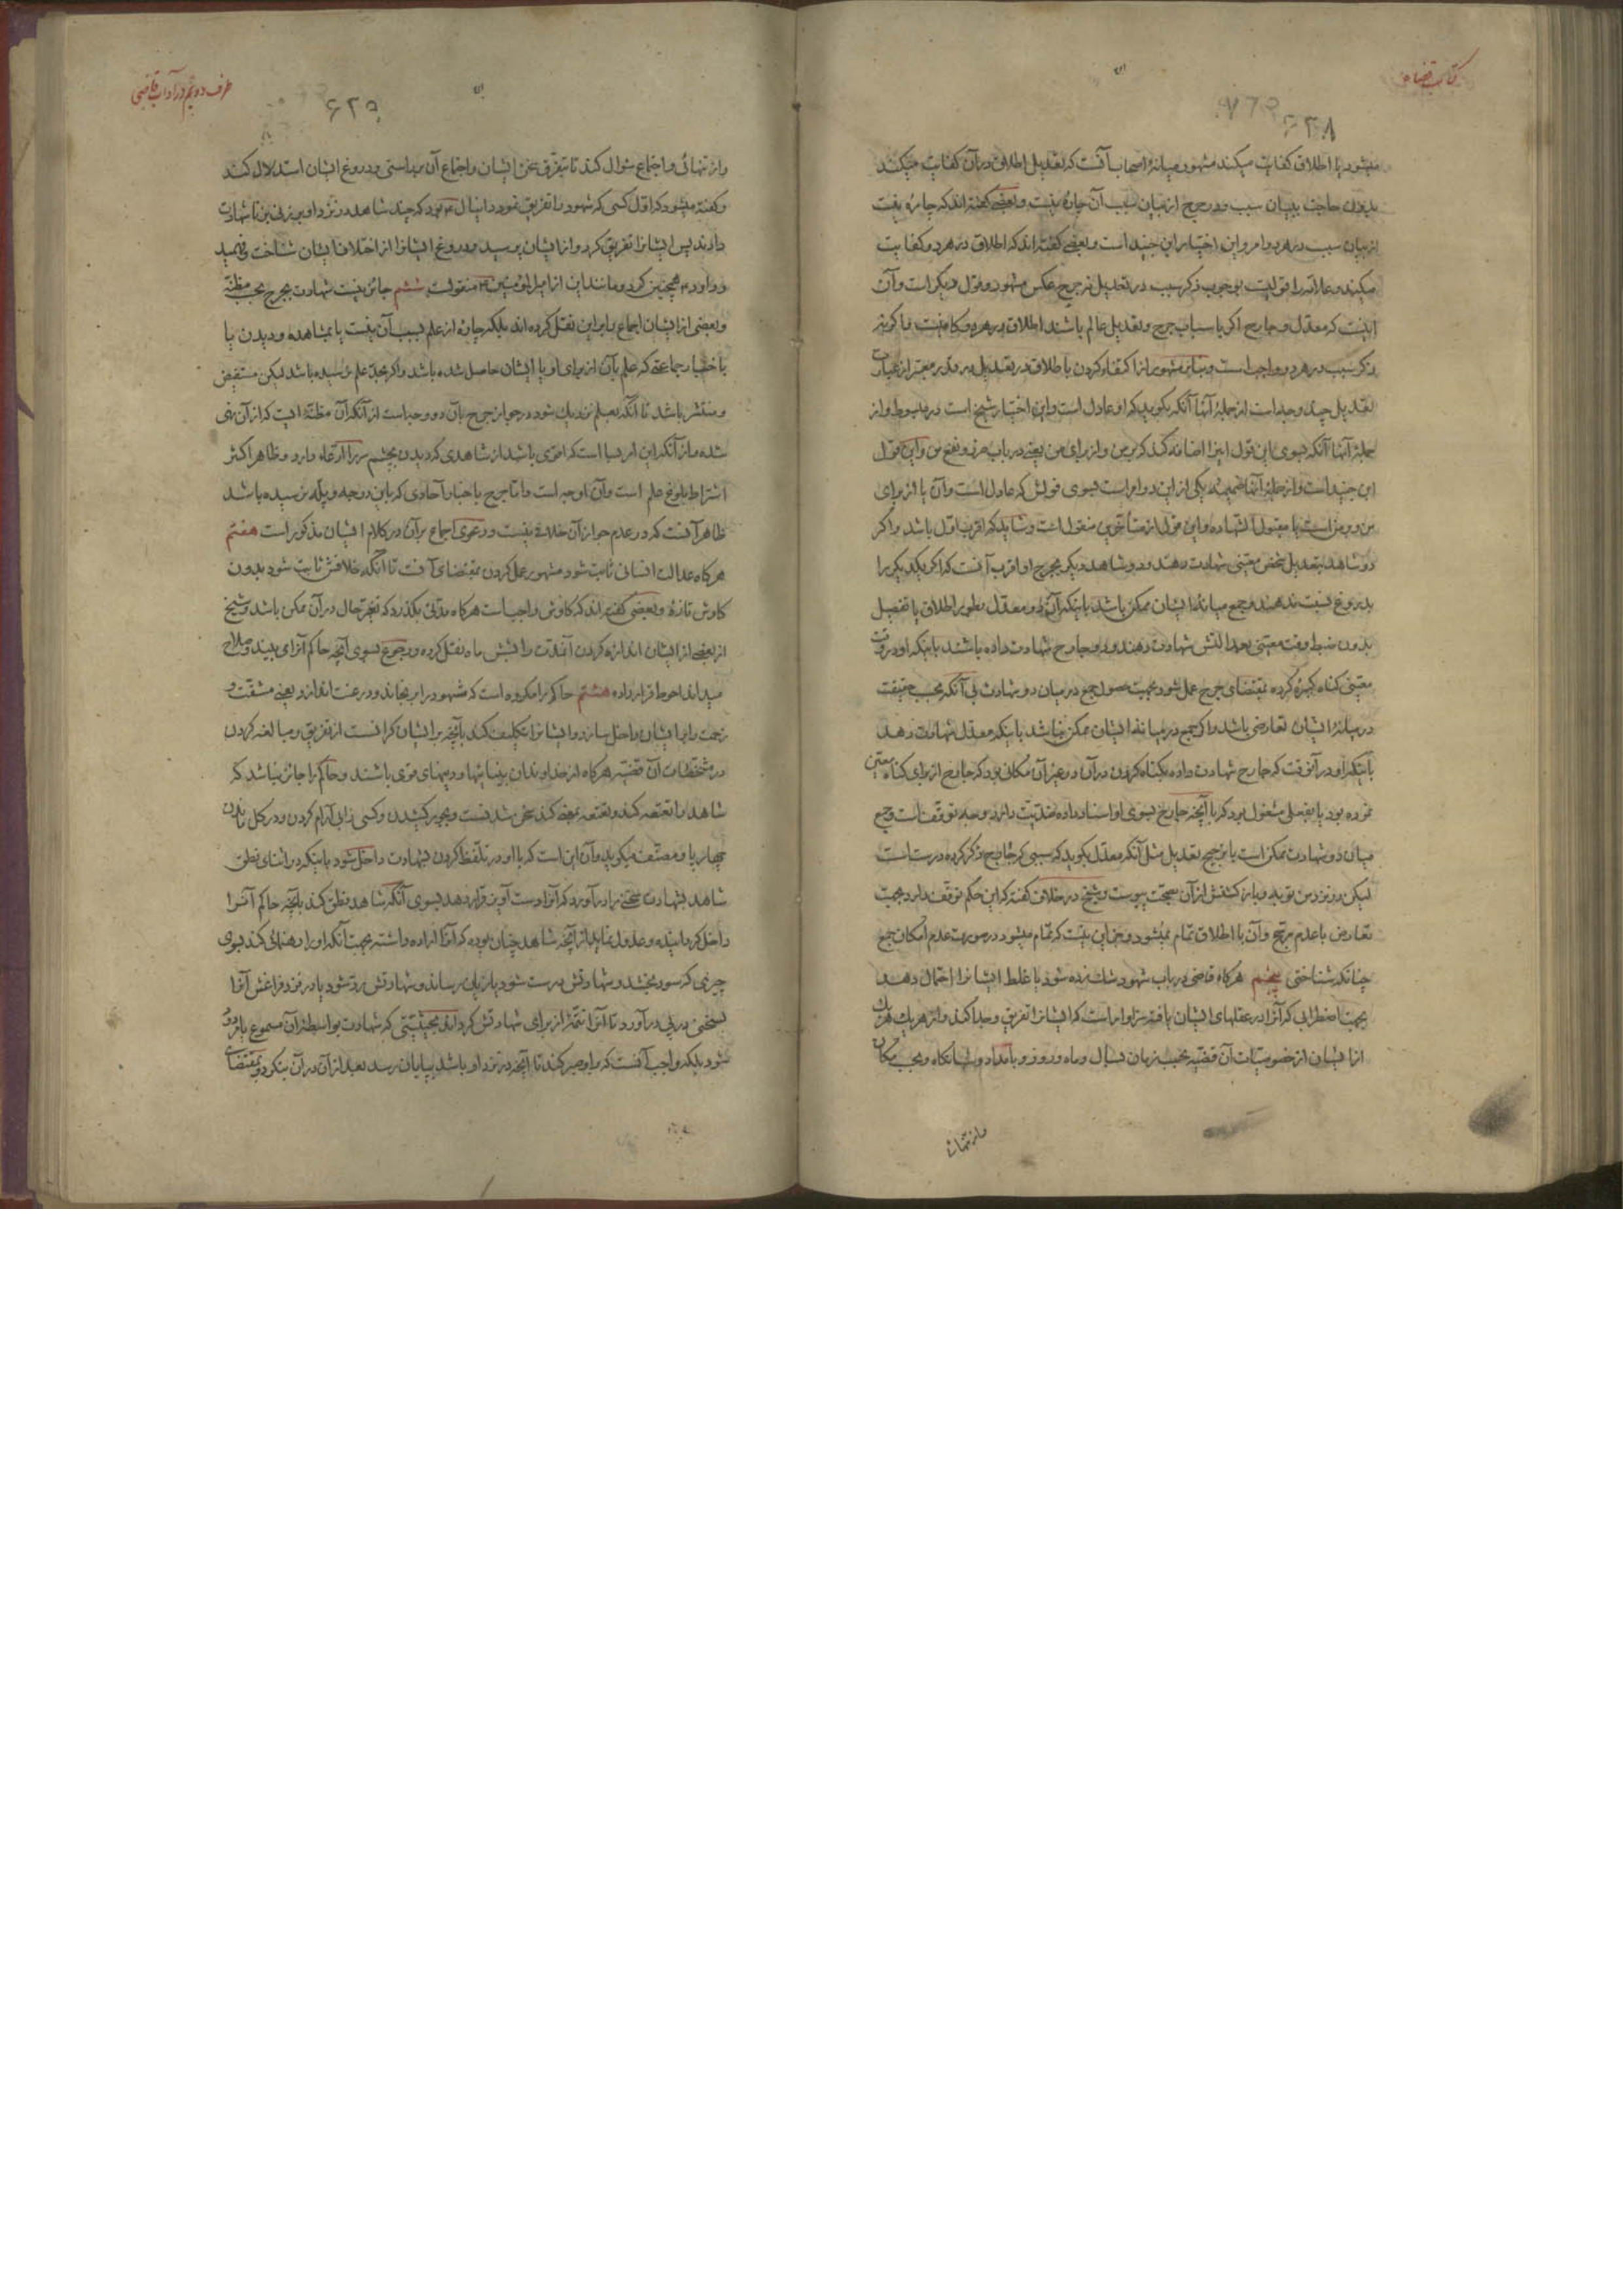 کتاب قضاء
۶۲۸
میشود یا اطلاق کفایت میکند مشهور میانهٔ اصحاب آنست که تعدیل اطلاق در آن کفایت میکند
بدون حاجت ببیان سبب و در جرح از بیان سبب آن چارهٔ نیست و بعضی گفته‌اند که چاره نیست
از بیان سبب در هر دو امر و این اختیار ابن جنید است و بعضی گفته‌اند که اطلاق در هر دو کفایت
میکند و علامه را قولیست بوجوب ذکر سبب در تعدیل نه جرح عکس مشهور و قول دیگر است و آن
اینست که معدل و جارح اگر باسباب جرح و تعدیل عالم باشند اطلاق در هر دو کافیست و اگر نه
ذکر سبب در هر دو واجب است و بنابر مشهور از اکتفاء کردن باطلاق در تعدیل در قدر معتبر از عبارت
تعدیل چند وجه است از جملهٔ آنها آنکه بگوید که او عادل است و این اختیار شیخ است در مبسوط و از
جملهٔ آنها آنکه بسوی این قول اینرا اضافه کند که بر من و از برای من یعنی در باب ضرر و نفع من و این قول
ابن جنید است و از جملهٔ آنها ضمیمه یکی از این دو امر است بسوی قولش که عادل است و آن یا از برای
من و بر من است یا مقبول الشهاده و این قول از متأخرین منقول است و شاید که اقرب اول باشد و اگر
دو شاهد بتعدیل شخص معینی شهادت دهند و دو شاهد دیگر بجرح او اقرب آنست که اگر یکدیگر را
بدروغ نسبت ندهند و جمع میانهٔ ایشان ممکن باشد باینکه آن دو معدل بطور اطلاق یا تفصیل
بدون ضبط وقت معینی بعدالتش شهادت دهند و دو جارح شهادت داده باشند باینکه او در وقت
معینی گناه کبیرهٔ کرده بمقتضای جرح عمل شود بجهت حصول جمع در میان دو شهادت بی آنکه بحسب حقیقت
در میانهٔ ایشان تعارضی باشد و اگر جمع در میانهٔ ایشان ممکن نباشد باینکه معدل شهادت دهد
باینکه او در آنوقت که جارح شهادت داده بگناه کردن در آن در غیر آن مکانی بود که جارح از برای گناه معین
نموده بود یا بفعلی مشغول بود که با آنچه جارح بسوی او اسناد داده ضدیت دارد وجه توقف است و جمع
میان دو شهادت ممکن است یا ترجیح تعدیل مثل آنکه معدل بگوید که سببی که جارح ذکر کرده درست است
لیکن در نزد من توبه و بازگشتش از آن بصحت پیوست و شیخ در خلاف گفته که این حکم توقف دارد بجهت
تعارض با عدم مرجح و آن با اطلاق تمام نمیشود و جز این نیست که تمام میشود در صورت عدم امکان جمع
چنانکه شناختی پنجم هرگاه قاضی در باب شهود شک زده شود یا غلط ایشانرا احتمال دهد
بجهت اضطرابی که آنرا در عقلهای ایشان یافته سزاوار است که ایشانرا تفریق و جدا کند و از هر یک هر یک
از ایشان از خصوصیات آن قضیه بحسب زمان بسال و ماه و روز و بامداد و شبانگاه و بحسب مکان
و از تنهائی
طرف دویم در آداب قاضی
۶۲۹
و از تنهائی و اجتماع سؤال کند تا بتفرق سخن ایشان و اجتماع آن براستی و دروغ ایشان استدلال کند
و گفته میشود که اول کسی که شهود را تفریق نمود دانیال ع بود که چند شاهد در نزد او بر زنی بزنا شهادت
دادند پس ایشانرا تفریق کرد و از ایشان پرسید و دروغ ایشانرا از اختلاف ایشان شناخت و فهمید
و داود ع همچنین کرد و مانند این از امیرالمؤمنین ع منقولست ششم جائز نیست شهادت بجرح بحسب مظنه
و بعضی از ایشان اجماع را بر این نقل کرده‌اند بلکه چارهٔ از علم بسبب آن نیست یا بمشاهده و دیدن یا
باخبار جماعتی که علم بآن از برای او با ایشان حاصل شده باشد و اگر بحد علم نرسیده باشد لیکن مستفیض
و منتشر باشد تا آنکه بعلم نزدیک شود در جواز جرح بآن دو وجه است از آنکه آن مظنهٔ است که از آن نهی
شده و از آنکه این امر بسا است که اقوی باشد از شاهدی که دیدن بچشم سر را ادعاء دارد و ظاهر اکثر
اشتراط بلوغ علم است و آن اوجه است و اما جرح باخبار آحادی که باین درجه و پله نرسیده باشد
ظاهر آنست که در عدم جواز آن خلافی نیست و دعوی اجماع بر آن در کلام ایشان مذکور است هفتم
هرگاه عدالت انسانی ثابت شود مشهور عمل کردن بمقتضای آنست تا آنکه خلافش ثابت شود بدون
کاوش تازهٔ و بعضی گفته‌اند که کاوش واجب است هرگاه مدتی بگذرد که تغیر حال در آن ممکن باشد و شیخ
از بعضی از ایشان اندازه کردن آنمدت را بشش ماه نقل کرده و رجوع بسوی آنچه حاکم آنرا می بیند و صلاح
میداند احوط قرار داده هشتم حاکم را مکروه است که شهود را برنجاند و در عنت اندازد یعنی مشقت و
زحمت را بر ایشان داخل سازد و ایشانرا تکلیف کند بآنچه بر ایشان گرانست از تفریق و مبالغه کردن
در مشخصات آن قضیه هرگاه از خداوندان بینائیها و دینهای قوی باشند و حاکم را جائز نباشد که
شاهد را تعتعه کند و تعتعه بمعنی کند سخن شدنست و بجبر کشیدن و کسی را بی آرام کردن و در گل ماندن
چهارپا و مصنف میگوید و آن این است که با او در تلفظ کردن بشهادت داخل شود باینکه در اثنای نطق
شاهد بشهادت سخنی را در آورد که آنرا دست آویز قرار دهد بسوی آنکه شاهد نطق کند بآنچه حاکم آنرا
داخل گردانیده و عدول نماید از آنچه شاهد چنان بوده که آنرا اراده داشته بجهت آنکه او را رهنمائی کند بسوی
چیزی که سود بخشد و شهادتش درست شود یا زیان رساند و شهادتش رد شود یا در نزد فراغش آنرا
بسخنی در پی در آورد تا آنرا تتمهٔ از برای شهادتش گرداند بحیثیتی که شهادت بواسطهٔ آن مسموع یا مردود
شود بلکه واجب آنست که بر او صبر کند تا آنچه در نزد او باشد بپایان رسد بعد از آن در آن بنگرد و بمقتضای